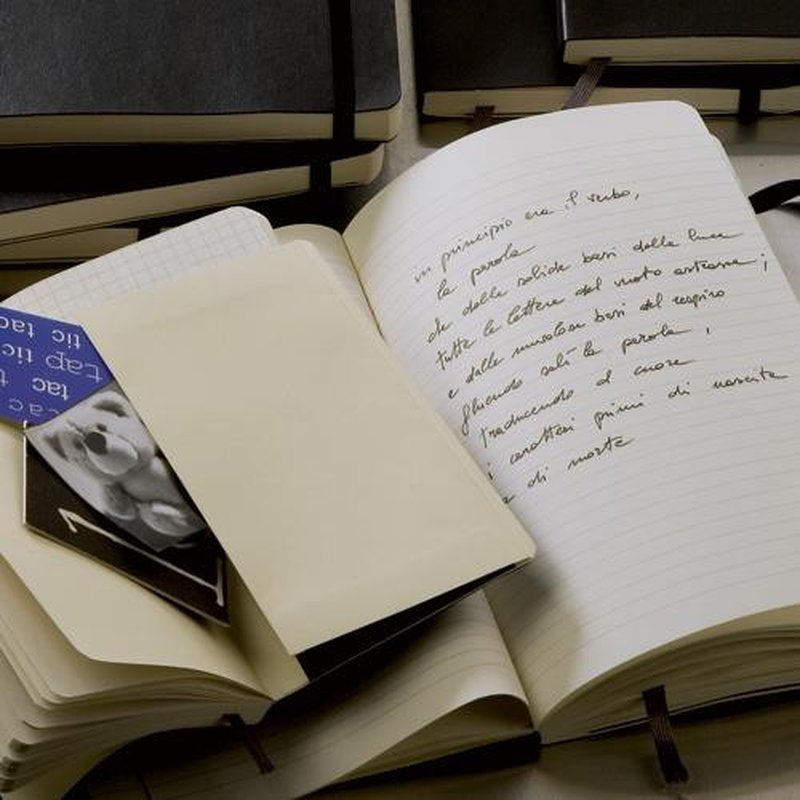 in principio era il verbo,
la parola
che dalle solide basi della luce
tutte le lettere del moto astrasse;
e dalle nuvolose basi del respiro
fluendo salì la parola,
traducendo al cuore
i caratteri primi di nascita
e di morte
tic tac
tap tic
tac
1